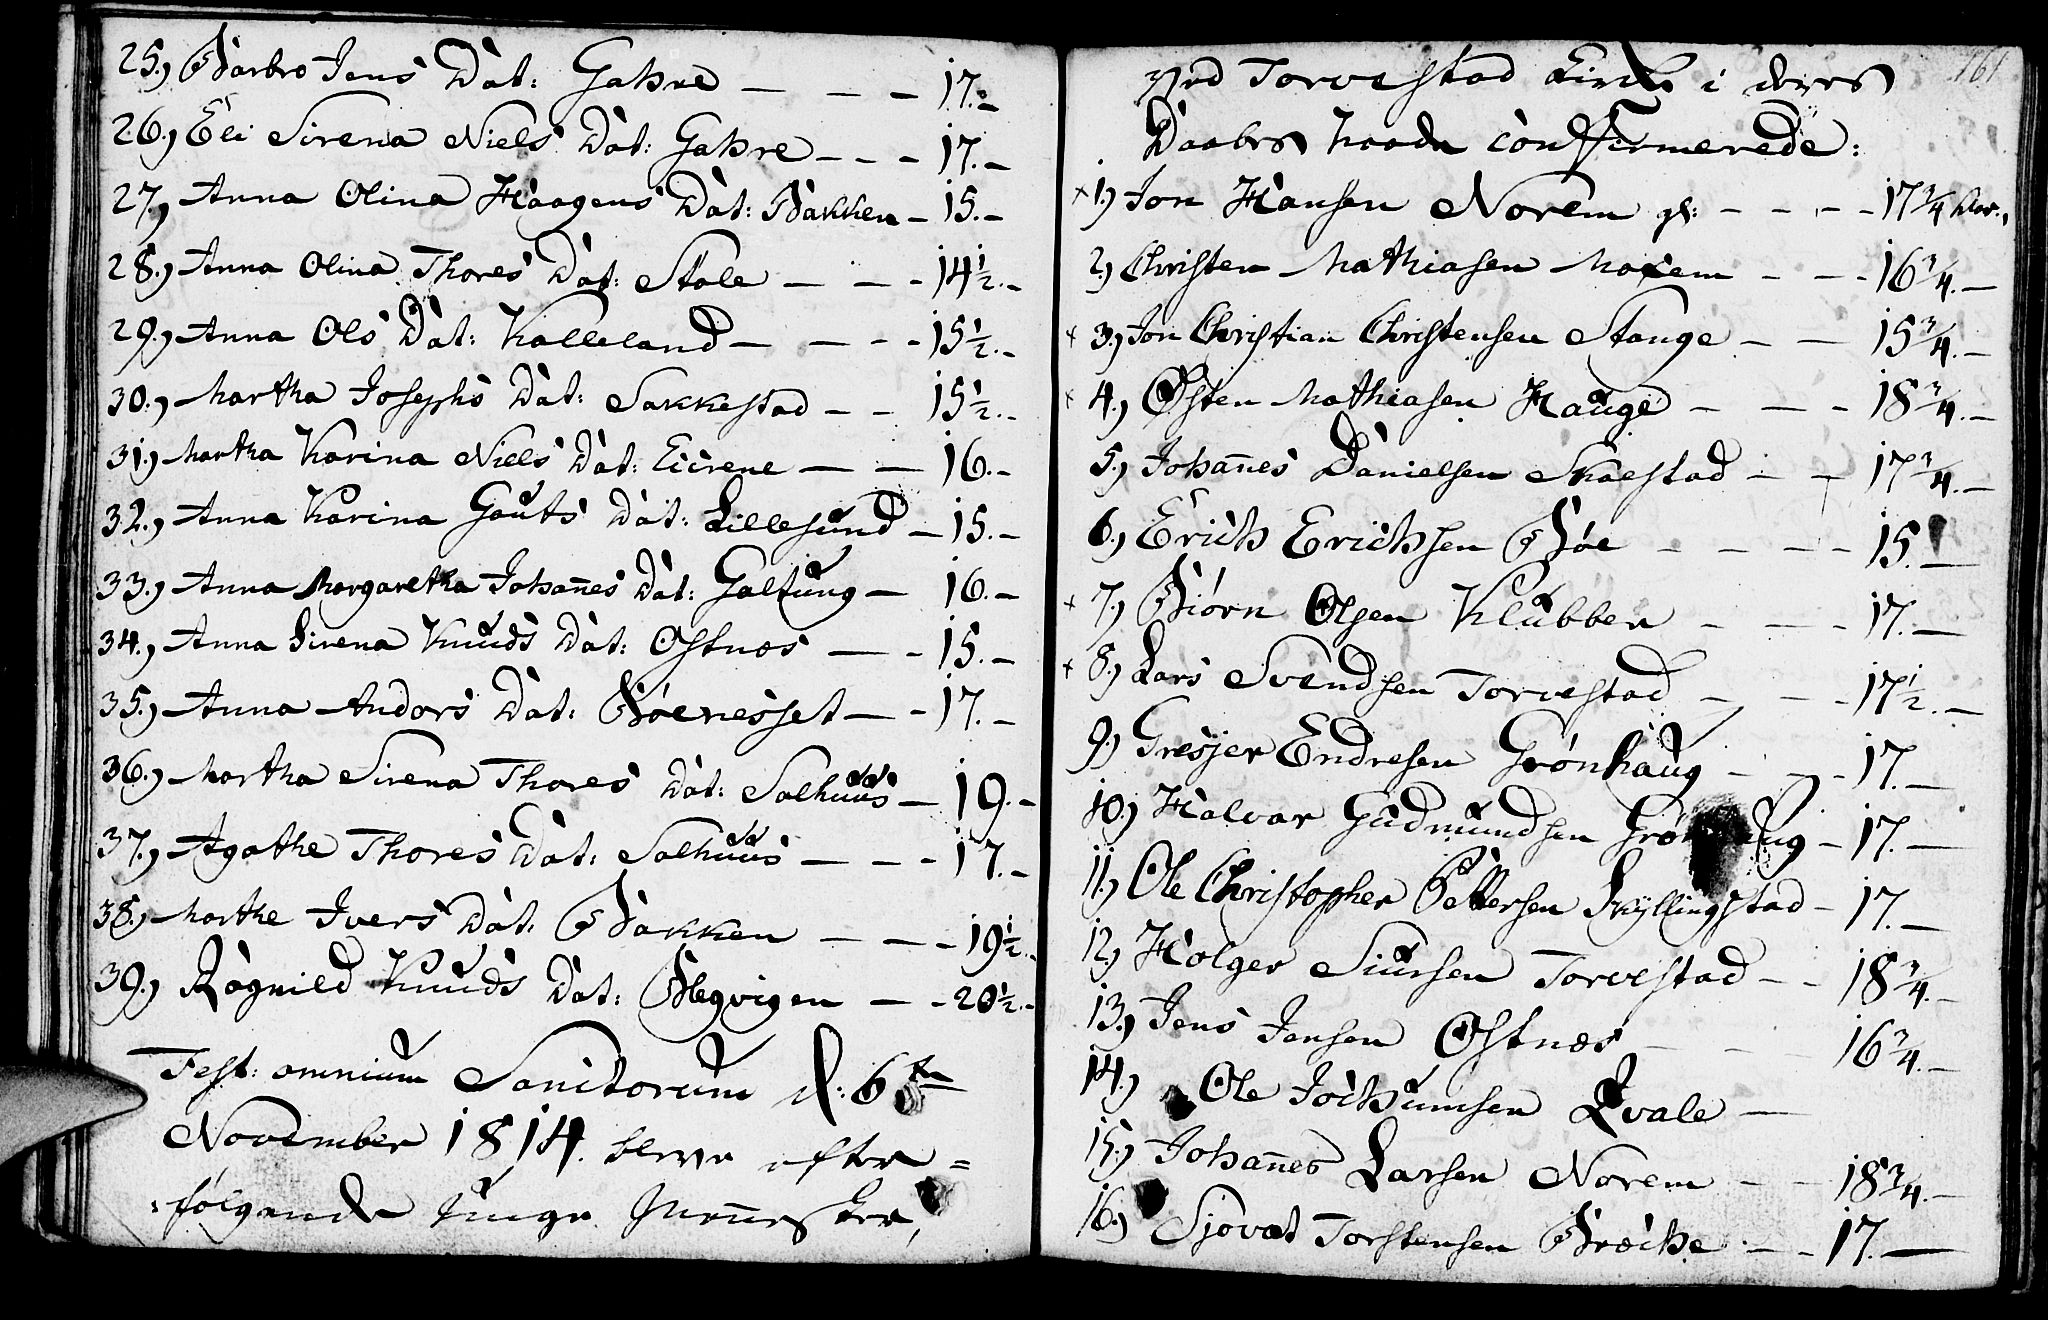 25.) Barbro Jens Dat: Gahre — — — 17.–
26.) Eli Sirena Niels Dat: Gahre — – – 17.–
27.) Anna Olina Haagens Dat: Bakken – 15.–
28.) Anna Olina Thores Dat: Stole — – – 14½.–
29.) Anna Ols Dat: Kalleland — – – – 15½.–
30.) Martha Josephs Dat: Sakkestad – – 15½.–
31.) Martha Karina Niels Dat: Eiirene — — 16.–
32.) Anna Karina Gauts Dat: Lillesund – 15.–
33.) Anna Margaretha Johan̄es Dat: Galtung – 16.–
34.) Anna Sirena Knuds Dat: Ostnæs — – 15.–
35.) Anna Andors Dat: Bóenesset — – 17.–
36.) Martha Sirena Thores Dat: Salhuus – 19.–
37.) Agathe Thores Dat: Salhuus — – – 17.–
38.) Marthe Ivers Dat: Bakken — — – 19½.–
39.) Ragnild Knuds Dat: Blegvigen – – 20½.–
Fest: omnium Sanctorum d: 6te
November 1814. bleve efter =
følgende unge Men̄esker,
161
ved Torvestad Kirke i deres
Daabes Naade confirmerede:
× 1.) Jon Hansen Norem gl: – – – – 17¾ Aar.,
2.) Christen Mathiasen Norem – – – 16¾.–
× 3.) Jon Christian Christensen Stange – — 15¾.–
× 4.) Østen Mathiasen Hauge – — – 18¾.–
5.) Johan̄es Danielsen Skaestad – – 17¾.–
6.) Erich Erichsen Bóe – – – – 15.–
× 7.) Biórn Olsen Klubben – — – 17.–
× 8.) Lars Svendsen Torvestad – — – 17½.–
9.) Gresjer Endresen Grónhaug – – – 17.–
10.) Halvor Gudmundsen Grónhaug – 17.–
11.) Ole Christopher Pettersen Skyllingstad – 17.–
12.) Holger Siursen Torvestad – – 18¾.–
13.) Jens Jensen Ostnæs – – – 16¾.–
14.) Ole Jochumsen Qvale —
15.) Johan̄es Larsen Norem – – 18¾.–
16.) Sjovat Torstensen Bræche – – 17.–